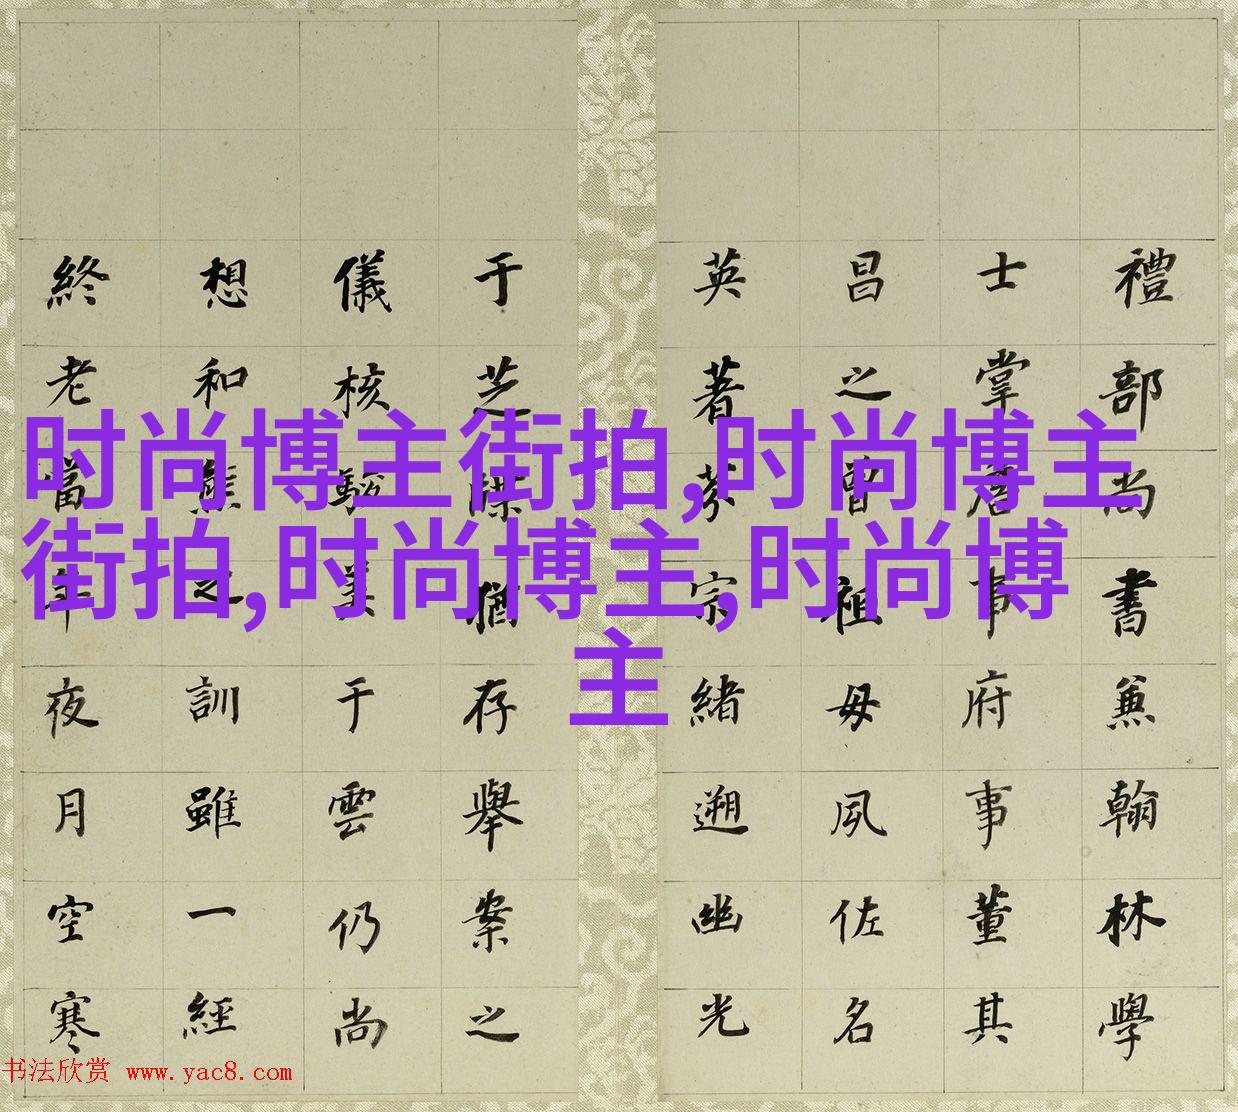 禮部尚書兼翰林學
士掌詹事府事董其
昌之曾祖母夙佐名
英著芬宗緒遡幽光
于芝牒猶存舉案之
儀核美于雲仍尚
想和熊之訓雖一經
終老當年夜月空寒
时尚博主街拍,时尚博主
街拍,时尚博主,时尚博
主
书法欣赏 www.yac8.com